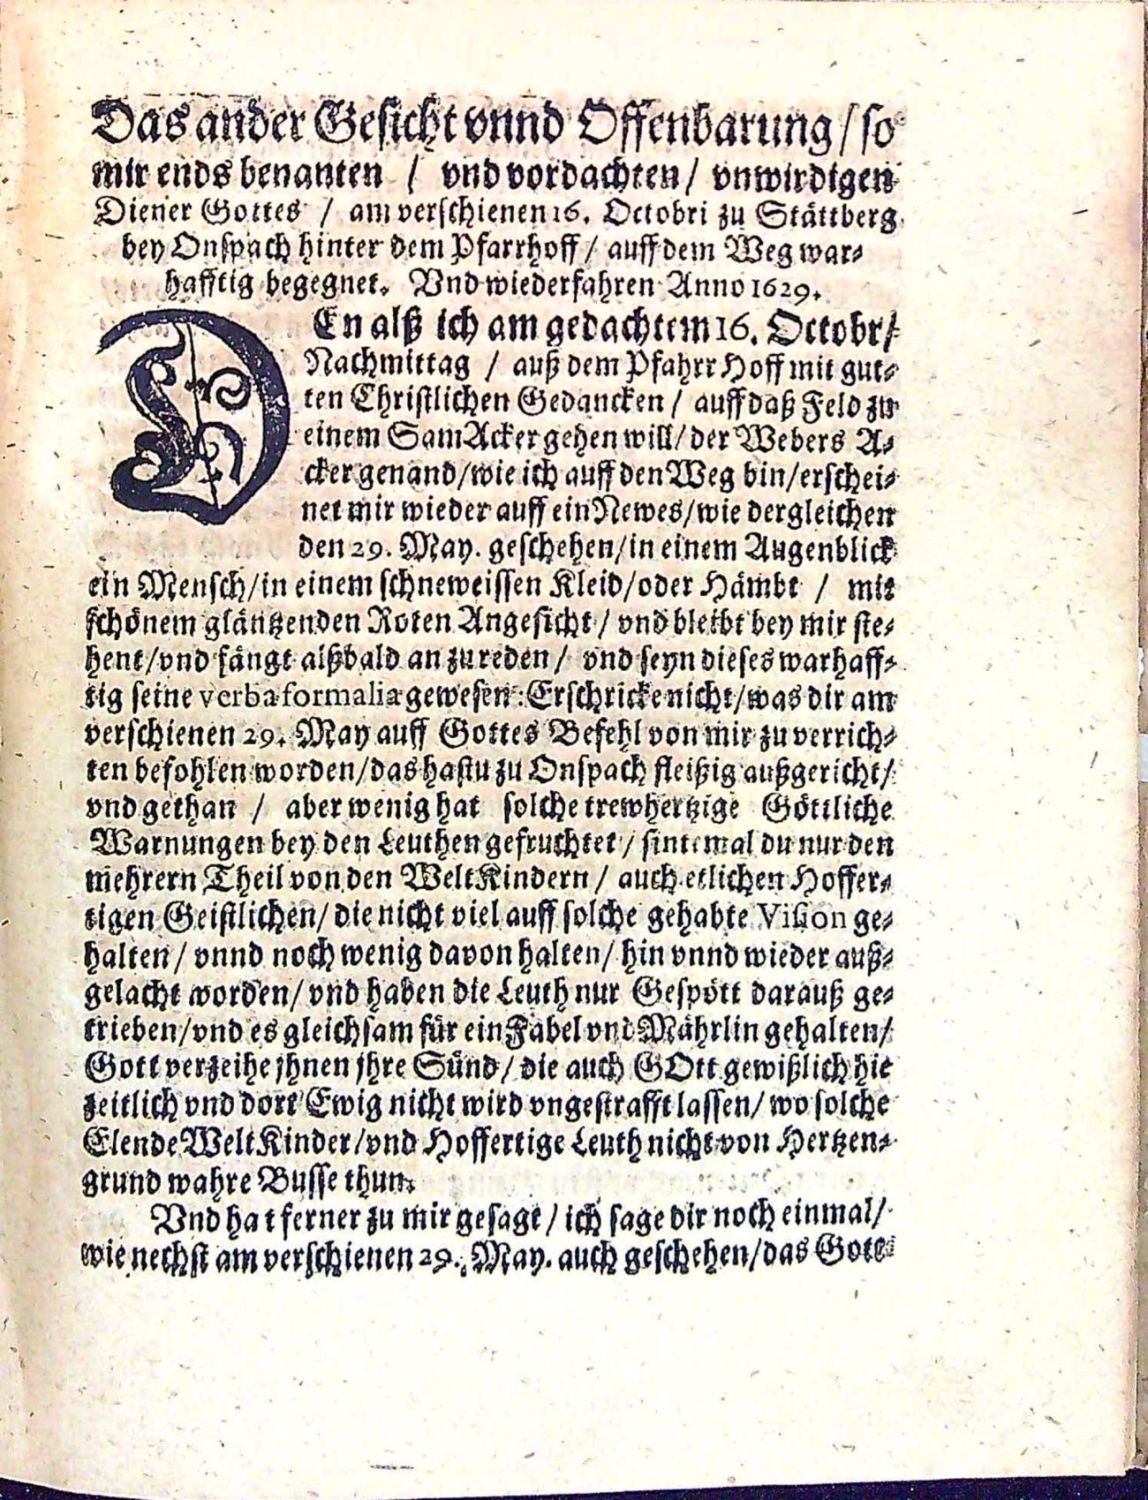 Das ander Gesicht vnnd Offenbarung / so
mir ends benanten / vnd vordachten / vnwirdigen
Diener Gottes / am verschienen 16. Octobri zu Stättberg
bey Onspach hinter dem Pfarrhoff / auff dem Weg war-
hafftig begegnet. Vnd wiederfahren Anno 1629.
DEn alß ich am gedachtem 16. Octobr /
Nachmittag / auß dem Pfahrr Hoff mit gut-
ten Christlichen Gedancken / auff daß Feld zu
einem Sam Acker gehen will / der Webers A-
cker genand / wie ich auff den Weg bin / erschei-
net mir wieder auff ein Newes / wie dergleichen
den 29. May. geschehen / in einem Augenblick
ein Mensch / in einem schneweissen Kleid / oder Hämbt / mit
schönem gläntzenden Roten Angesicht / vnd bleibt bey mir ste-
hent / vnd fängt alßbald an zu reden / vnd seyn dieses warhaff-
tig seine verba formalia gewesen: Erschricke nicht / was dir am
verschienen 29. May auff Gottes Befehl von mir zu verrich-
ten befohlen worden / das hastu zu Onspach fleißig außgericht /
vnd gethan / aber wenig hat solche trewhertzige Göttliche
Warnungen bey den Leuthen gefruchtet / sintemal du nur den
mehrern Theil von den Welt Kindern / auch etlichen Hoffer-
tigen Geistlichen / die nicht viel auff solche gehabte Vision ge-
halten / vnnd noch wenig davon halten / hin vnnd wieder auß-
gelacht worden / vnd haben die Leuth nur Gespött darauß ge-
trieben / vnd es gleichsam für ein Fabel vnd Mährlin gehalten /
Gott verzeihe jhnen jhre Sünd / die auch GOtt gewißlich hie
zeitlich vnd dort Ewig nicht wird vngestrafft lassen / wo solche
Elende Welt Kinder / vnd Hoffertige Leuth nicht von Hertzen-
grund wahre Busse thun.
Vnd hat ferner zu mir gesagt / ich sage dir noch einmal /
wie nechst am verschienen 29. May. auch geschehen / das Gott